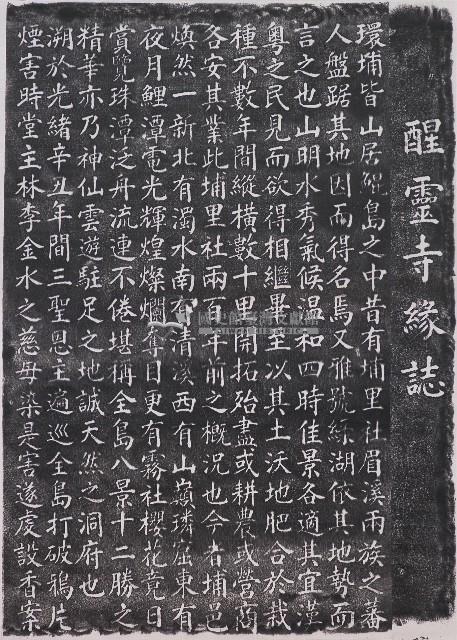 醒靈寺緣誌
環埔皆山居鯤島之中昔有埔里社眉溪兩族之蕃
人盤踞其地因而得名焉又雅號綠湖依其地勢而
言之也山明水秀氣候温和四時佳景各適其宜漢
粵之民見而欲得相繼畢至以其土沃地肥合於栽
種不數年間縱橫數十里開拓殆盡或耕農或營商
各安其業此埔里社兩百年前之概況也今者埔邑
煥然一新北有濁水南有清溪西有山巔璘窟東有
夜月鯉潭電光輝煌燦爛奪目更有霧社櫻花竟日
賞覽珠潭泛舟流連不倦堪稱全島八景十二勝之
精華亦乃神仙雲遊駐足之地誠天然之洞府也
溯於光緒辛丑年間三聖恩主遍巡全島打破鴉片
煙害時堂主林李金水之慈母染是害遂虔設香案